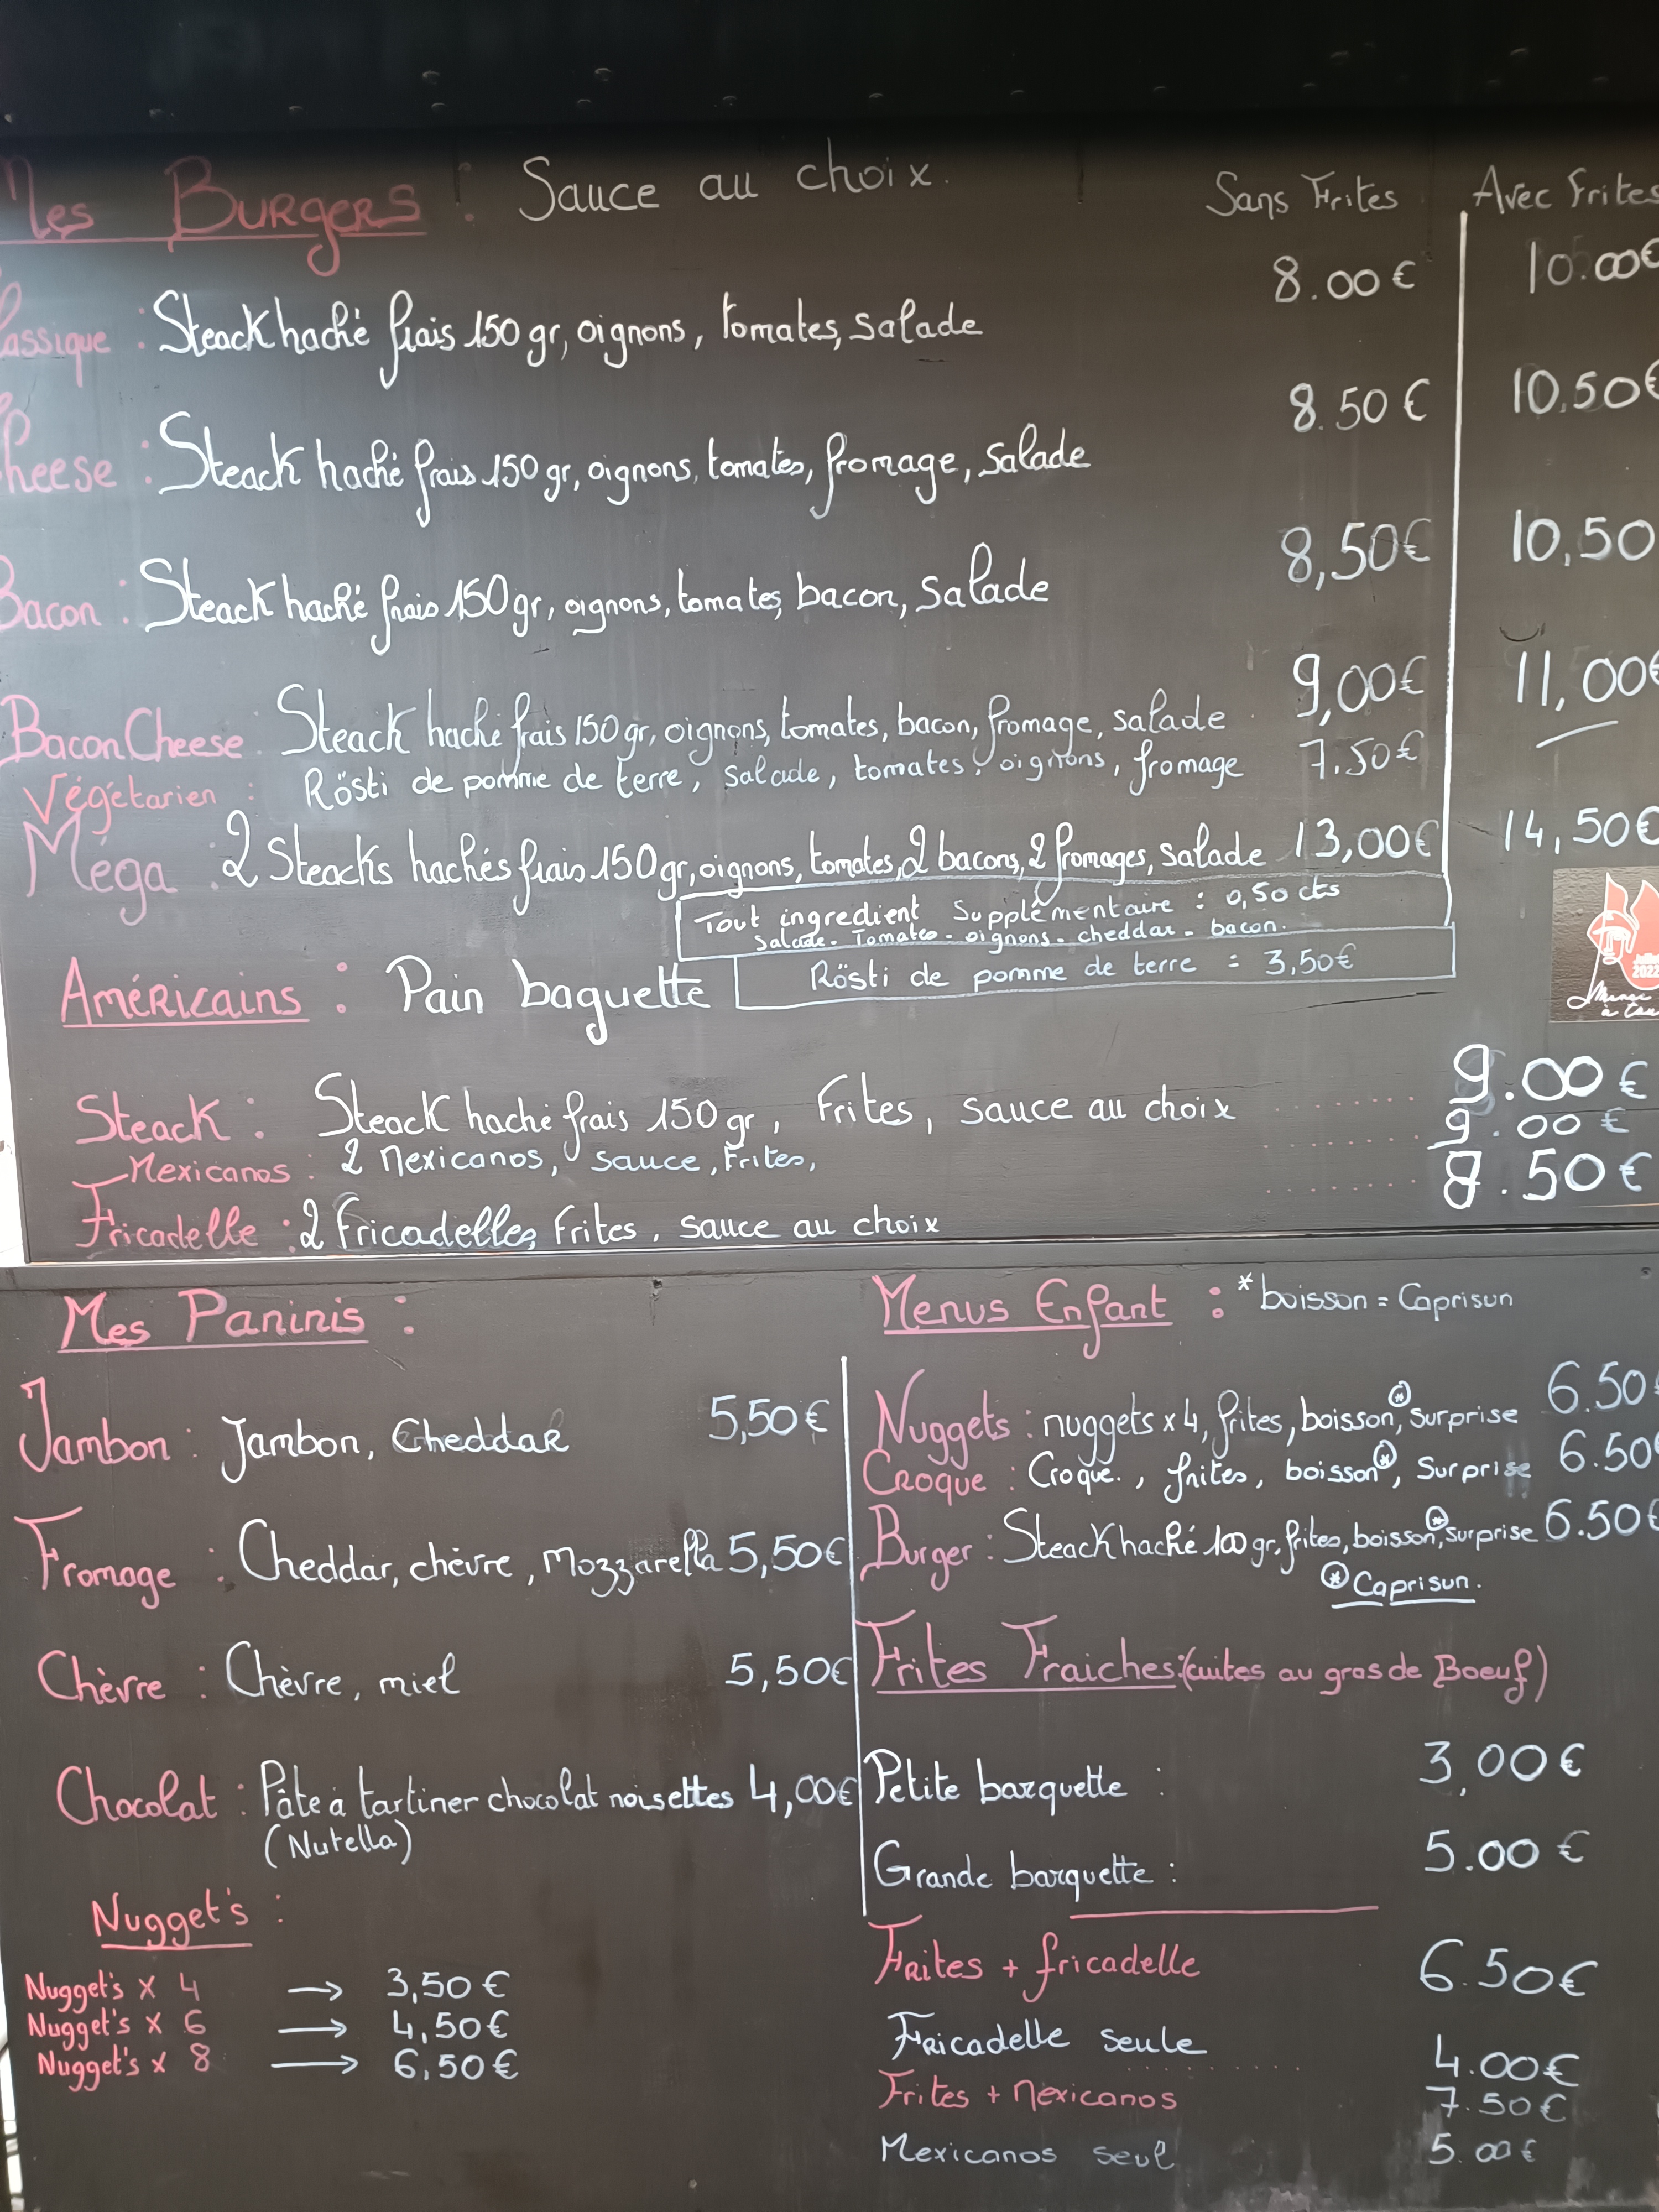 Mes Burgers : Sauce au choix. Sans Frites Avec Frites
Classique : Steack haché frais 150 gr, oignons, tomates, salade 8.00 € 10.00€
Cheese : Steack haché frais 150 gr, oignons, tomates, fromage, salade 8.50 € 10,50€
Bacon : Steack haché frais 150 gr, oignons, tomates, bacon, salade 8,50€ 10,50
Bacon Cheese : Steack haché frais 150 gr, oignons, tomates, bacon, fromage, salade 9,00€ 11,00€
Végétarien : Rösti de pomme de terre, salade, tomates, oignons, fromage 7.50€
Méga : 2 Steacks hachés frais 150 gr, oignons, tomates, 2 bacons, 2 fromages, salade 13,00€ 14,50€
Tout ingredient Supplémentaire : 0,50 cts
Salade - Tomates - oignons - cheddar - bacon.
Rösti de pomme de terre = 3,50€
2022
Américains : Pain baguette
Steack : Steack haché frais 150 gr, Frites, sauce au choix 9.00 €
Mexicanos : 2 Mexicanos, sauce, Frites, 9.00 €
Fricadelle : 2 Fricadelles, Frites, sauce au choix 8.50 €
Mes Paninis :
Jambon : Jambon, Cheddar 5,50€
Fromage : Cheddar, chèvre, Mozzarella 5,50€
Chèvre : Chèvre, miel 5,50€
Chocolat : Pâte à tartiner chocolat noisettes 4,00€
(Nutella)
Nugget's :
Nugget's x 4 → 3,50€
Nugget's x 6 → 4,50€
Nugget's x 8 → 6,50€
Menus Enfant : *boisson = Caprisun
Nuggets : nuggets x 4, frites, boisson*, surprise 6.50
Croque : Croque., frites, boisson*, Surprise 6.50€
Burger : Steack haché 100 gr, frites, boisson*, surprise 6.50€
* Caprisun.
Frites Fraiches : (cuites au gras de Boeuf)
Petite barquette : 3,00€
Grande barquette : 5.00 €
Frites + fricadelle 6.50€
Fricadelle seule 4.00€
Frites + Mexicanos 7.50€
Mexicanos seul 5.00€